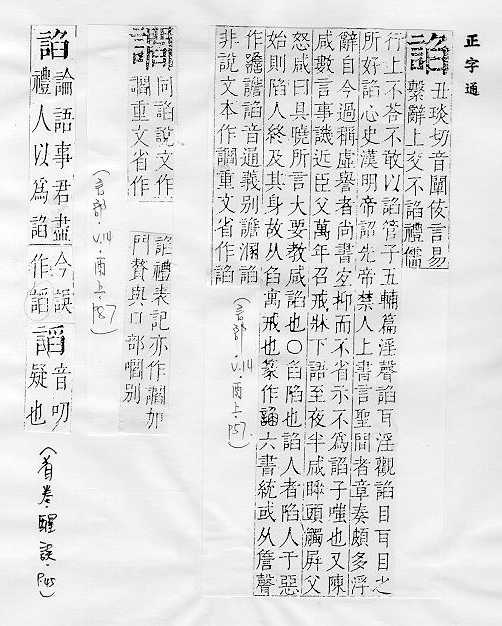 正字通
諂
丑琰切音闡佞言易
繫辭上交不諂禮儒
行上不荅不敢以諂管子五輔篇淫聲諂耳淫觀諂目耳目之
所好諂心史漢明帝詔先帝禁人上書言聖閒者章奏頗多浮
辭自今過稱虛譽者尚書宜抑而不省示不為諂子嗤也又陳
咸數言事譏近臣父萬年召戒牀下語至夜半咸睡頭觸屏父
怒咸曰具曉所言大要教咸諂也〇諂陷也諂人者陷人于惡
始則陷人終及其身故从臽寓戒也篆作讇六書統或从詹聲
作譫譫諂音通義別譫溷諂
非說文本作讇重文省作諂
(言部.V.14.酉上.P57.)
同諂說文作
讇重文省作
諂禮表記亦作讇加
門贅與口部嚪別
(言部.V.14.酉上.P87)
諂
論語事君盡
禮人以為諂
今誤
作謟
謟
音叨
疑也
(首卷.醒誤.P45)